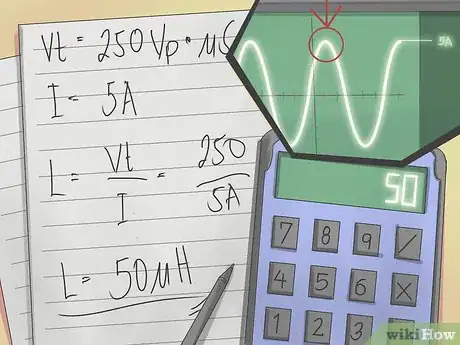 Vt = 250 Vp • µS
I = 5A
L = Vt/I = 250/5A
L = 50µH
5A
50
7 8 9 /
4 5 6 X
1 2 3
wikiHow